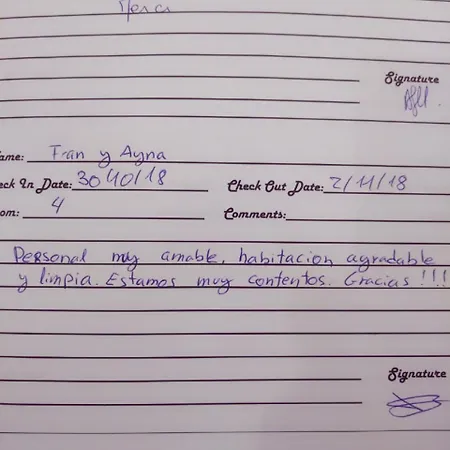 Signature
Name: Fran y Ayna
eck In Date: 30/10/18 Check Out Date: 2/11/18
om: 4 Comments:
Personal muy amable, habitación agradable
y limpia. Estamos muy contentos. Gracias!!!
Signature